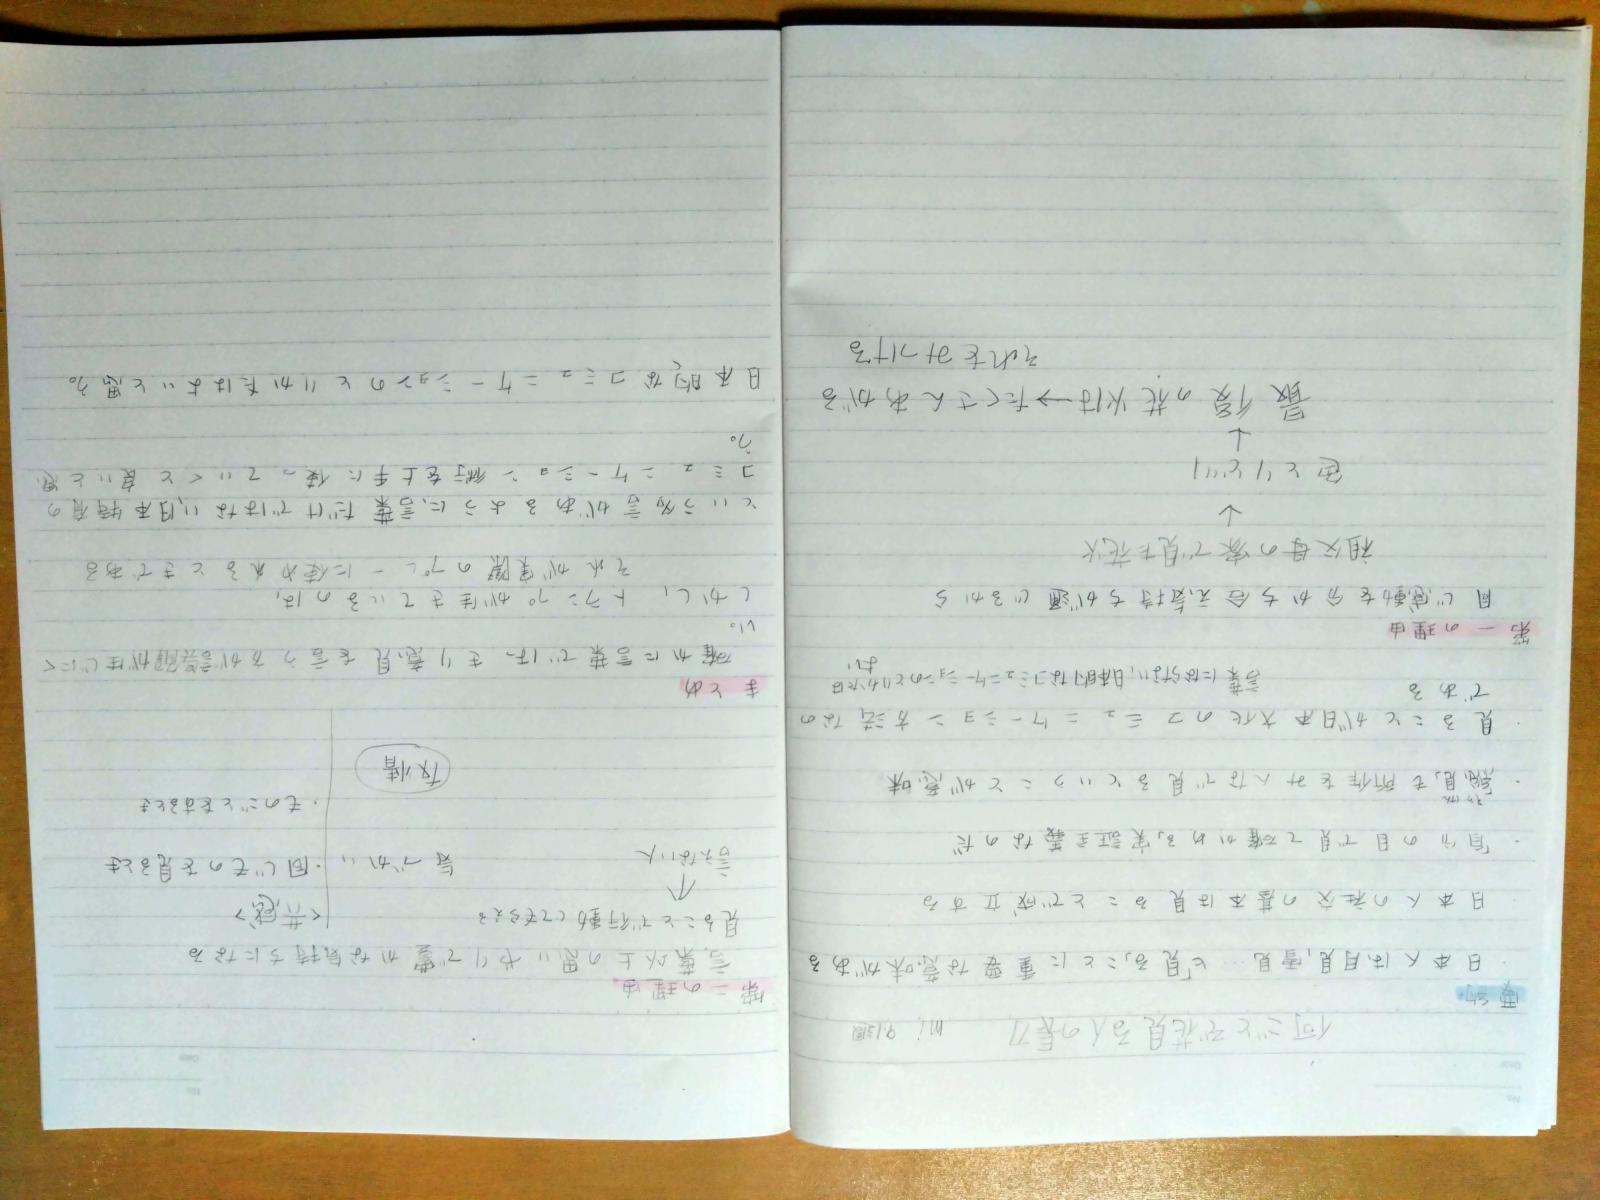 何ごとぞ花見る人の長刀
要約
・日本人は月見,雪見…と「見る」ことに重要な意味がある
・日本人の社交の基本は見ることで成立する
・自分の目で見て確かめる,実証主義なのだ
・見も所作をみんなで見るということが意味
・見ることが日本文化のコミュニケーション方法なの
である
言葉にはならない,日本的なコミュニケーションのとりかたは
よい
第一の理由
同じ感動を分かち合え,気持ちが通じるから
祖父母の家で見た花火
↓
色とりどり
↓
最後の花火は→たくさんあがる
それをみつける
第二の理由
言葉以上の思いやりで豊かな気持ちになる
見ることで行動してもらえる
↑
言えない人
気づかい
友情
<共感>
・同じものを見るとき
・ものごとをするとき
まとめ
確かに言葉ではっきり意見を言う方が誤解が生じにく
い。
しかし,トランプが生きているのは,
それが実際のプレーに使われるときである
という名言があるように,言葉だけではない,日本特有の
コミュニケーション術を上手に使っていくと良いと思
う。
日本的なコミュニケーションのとりかたはよいと思う。